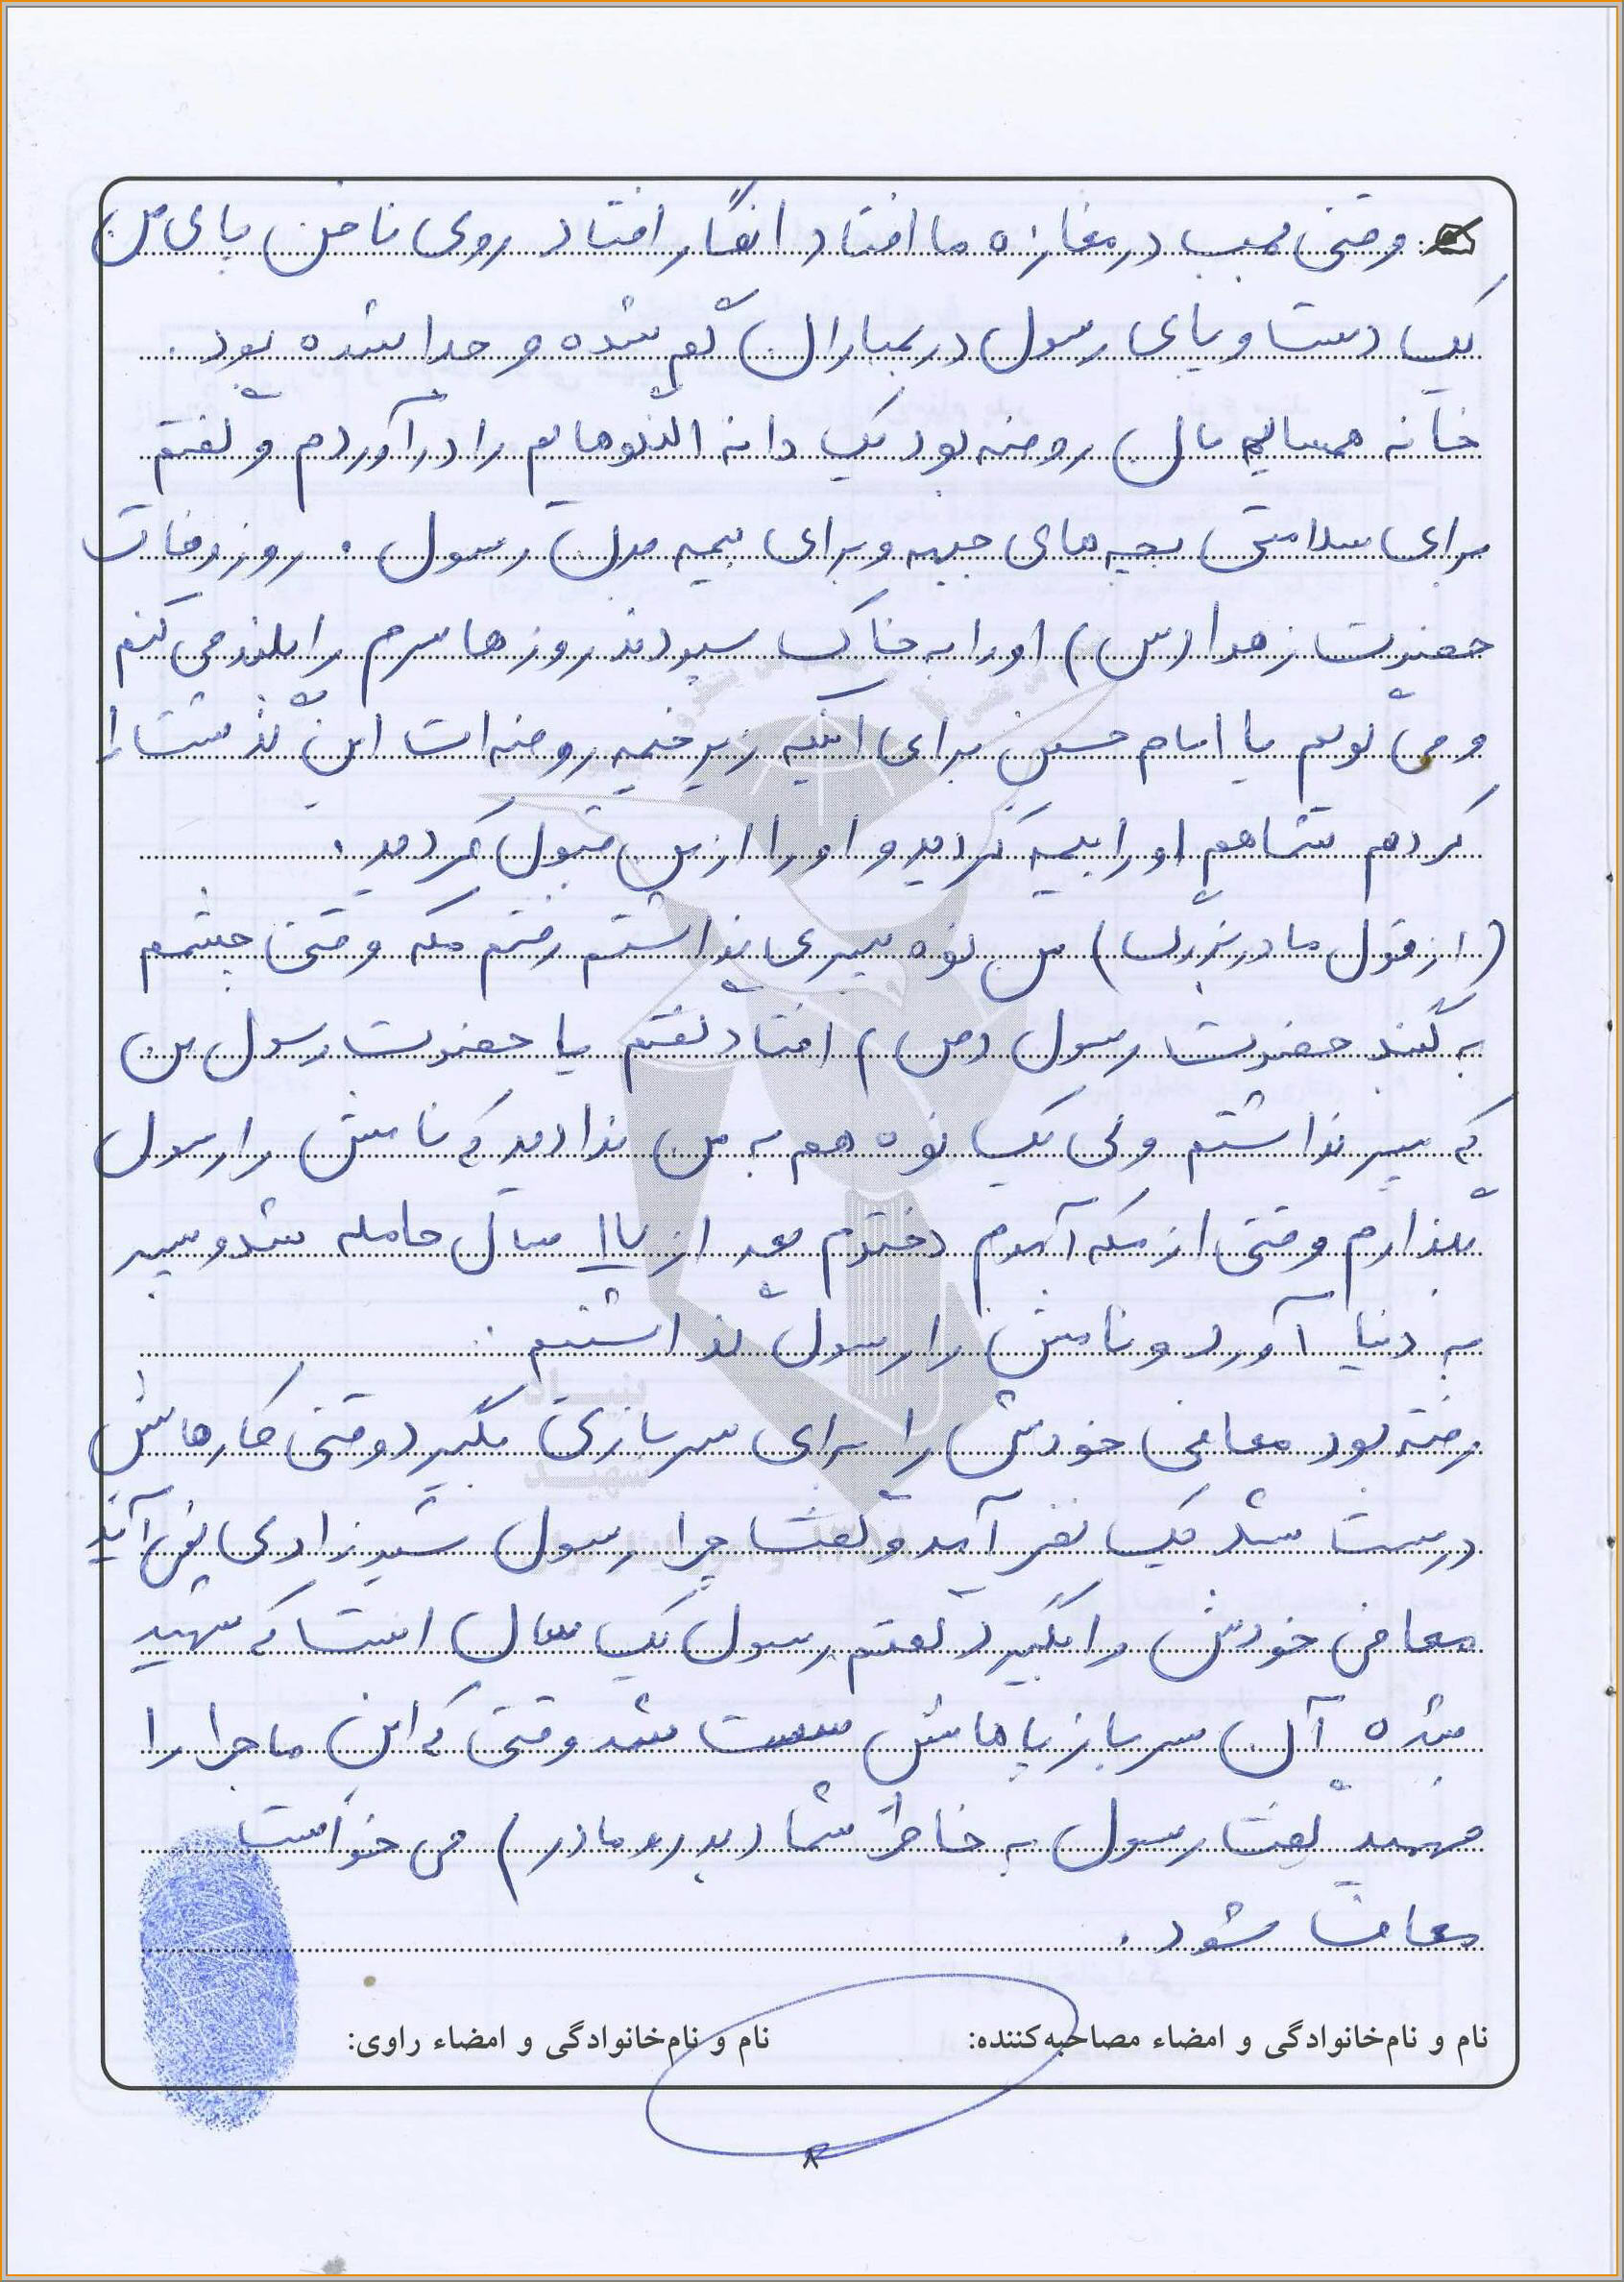 وقتی بمب در مغازه ما افتاد انگار افتاد روی ناخن پای من
یک دست و پای رسول در بمباران گم شده و جدا شده بود.
خانه همسایه مان روضه بود یک دانه النگوهایم را درآوردم و گفتم
برای سلامتی بچه‌های جبهه و برای بیمه بدن رسول. روز وفات
حضرت زهرا (س) او را به خاک سپردند روزها سرم را بلند می‌کنم
و می گویم یا امام حسین برای اینکه زیر خیمه روضه‌ات این گذشت را
کردم شما هم او را بیمه کردید و او را از من قبول کردید.
(از قول مادربزرگ) من نوه پسری نداشتم رفتم مکه وقتی چشمم
به گنبد حضرت رسول (ص) افتاد گفتم یا حضرت رسول من
که پسر نداشتم ولی یک نوه هم به من ندادید که نامش را رسول
بگذارم وقتی از مکه آمدم دخترم بعد از ۱۱ سال حامله شد و پسر
به دنیا آورد و نامش را رسول گذاشتیم.
رفته بود معافی خودش را برای سربازی بگیرد وقتی کارهاش
درست شد یک نفر آمد و گفت چرا رسول شیرزادی نمی آید
معافی خودش را بگیرد گفتم رسول یک سال است که شهید
شده آن سرباز پاهاش سست شد وقتی که این ماجرا را
فهمید گفت رسول به خاطر شما (پدر و مادر) می خواست
معاف شود.
نام و نام‌خانوادگی و امضاء مصاحبه‌کننده: نام و نام‌خانوادگی و امضاء راوی:
۸